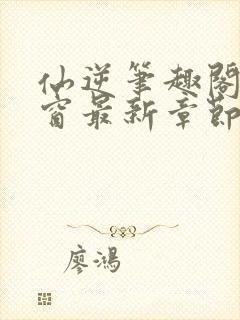 仙逆笔趣阁
窗最新章节
廖鸿